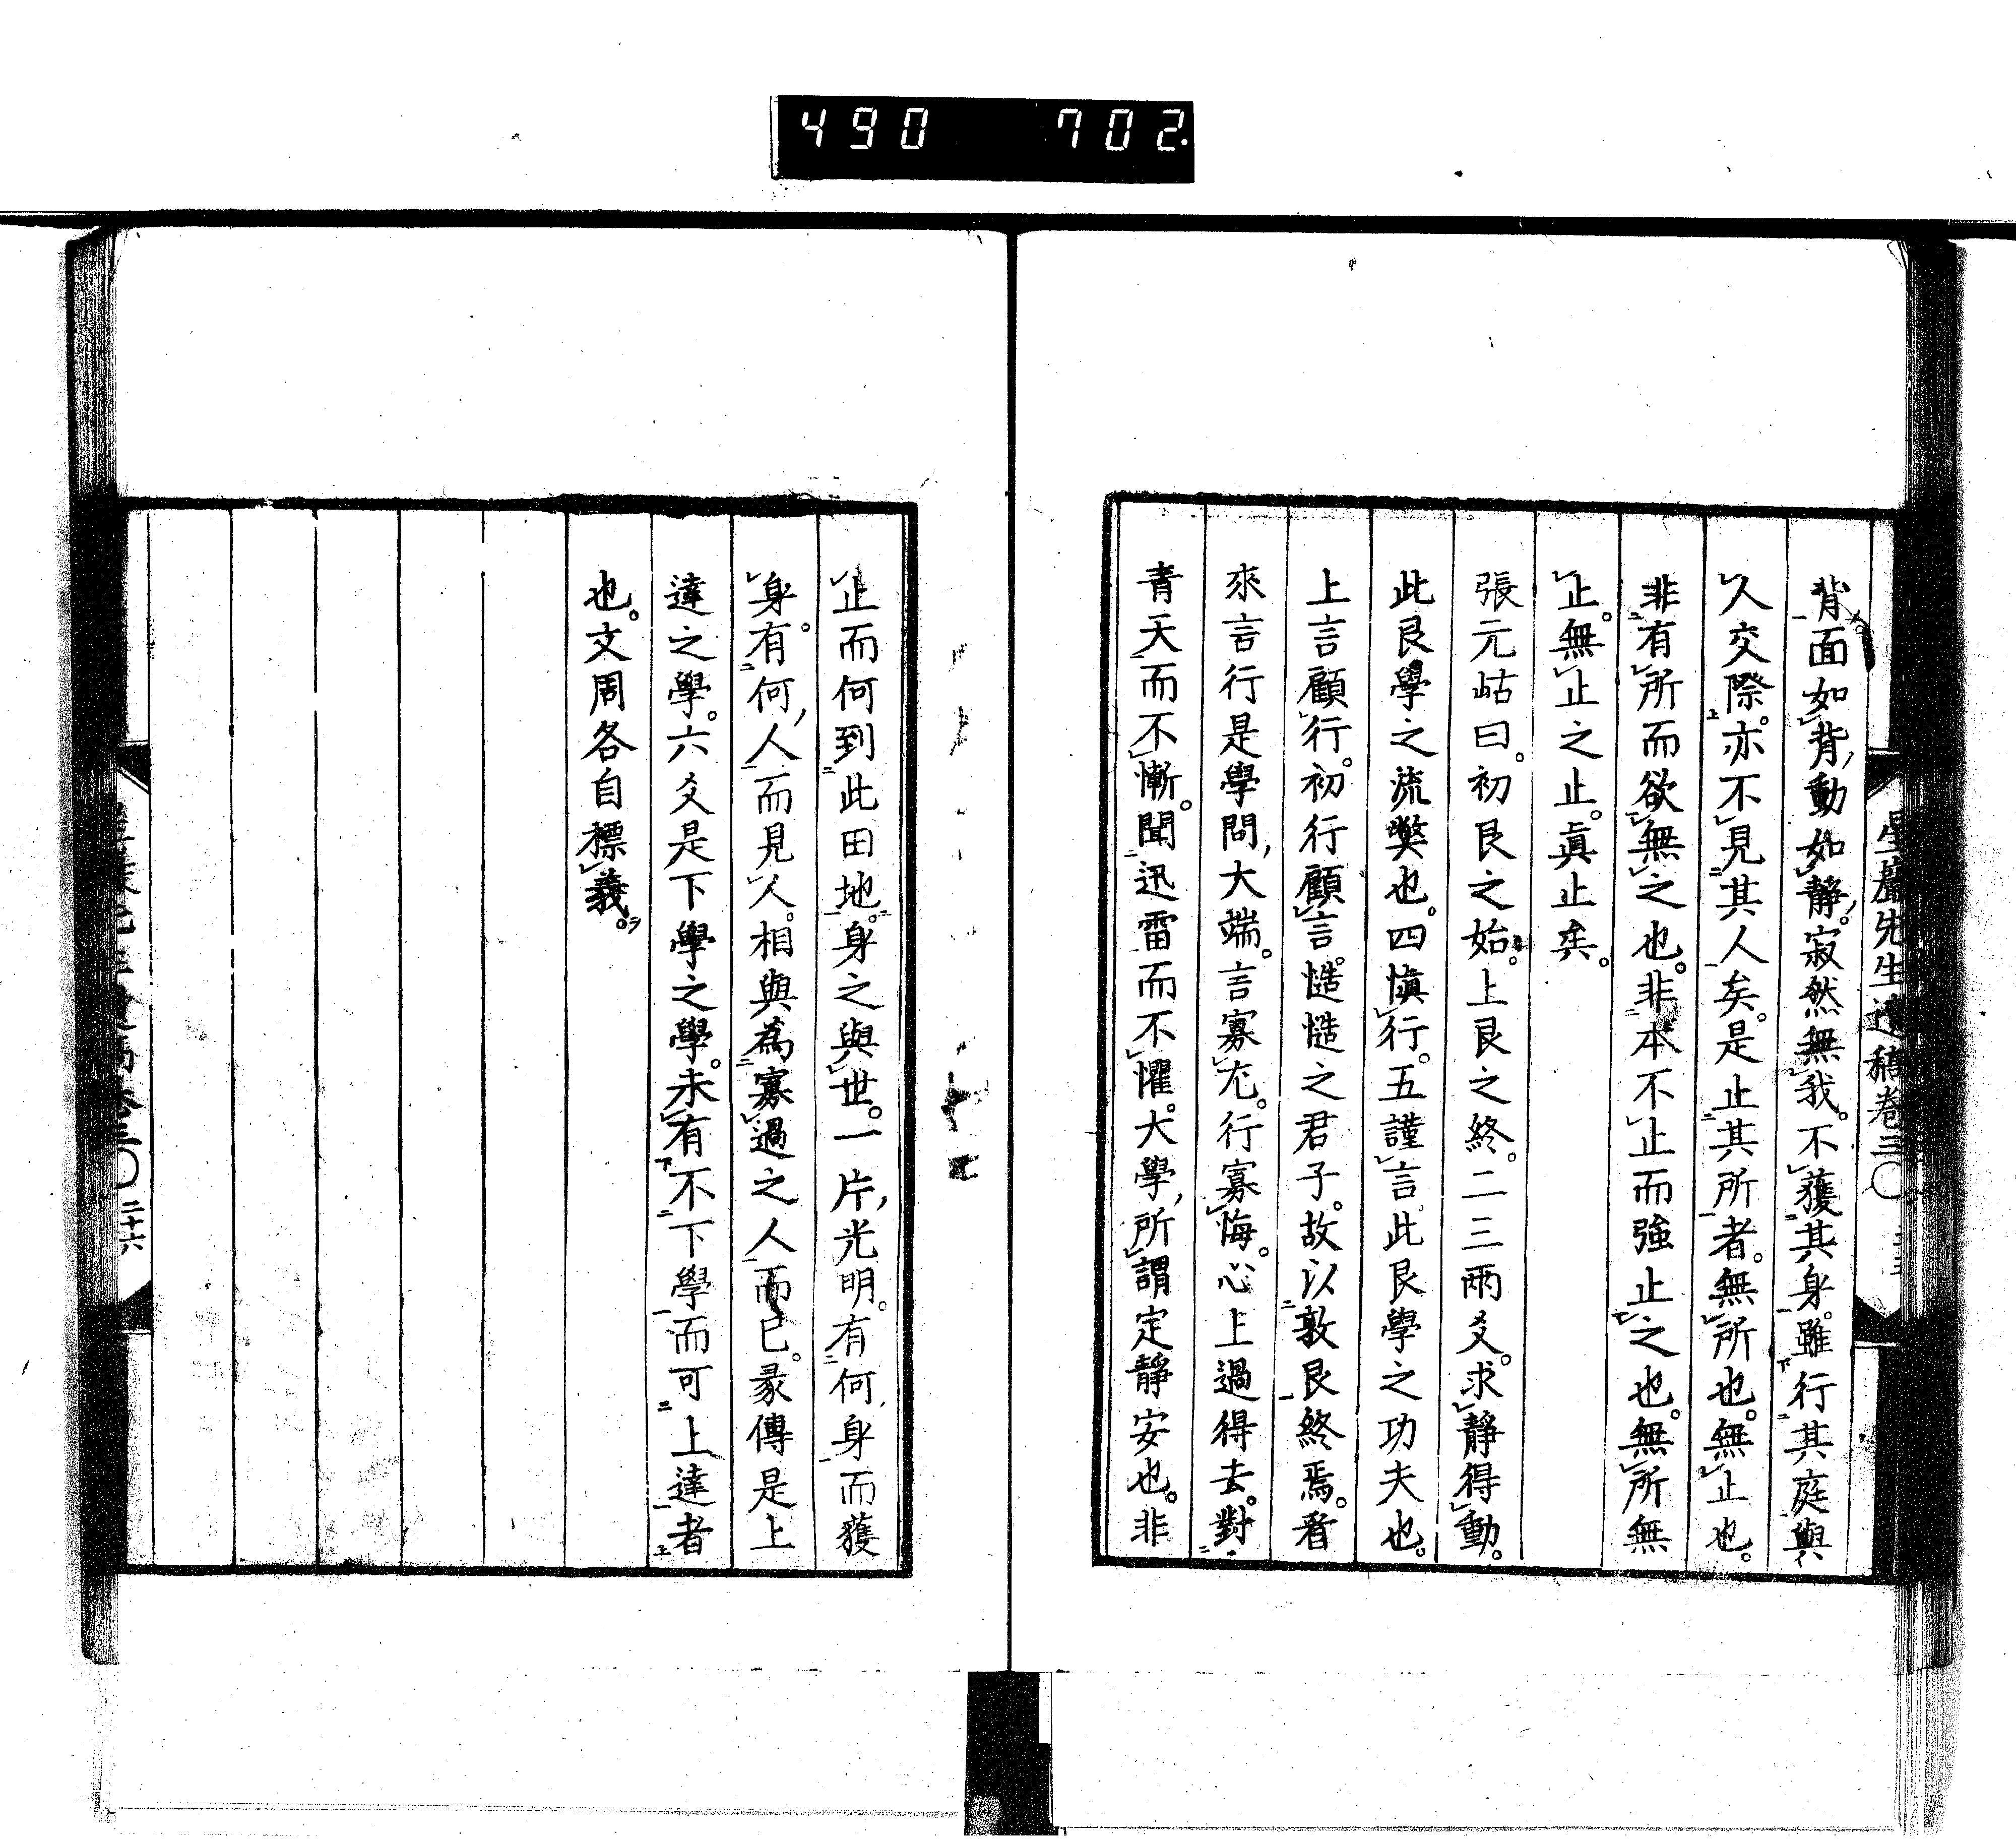 490 702
星巖先生遺稿卷三〇
背面如背、動如靜、寂然無我。不獲其身。雖行其庭與
人交際。亦不見其人矣。是止其所者。無所也。無止也。
非有所而欲無之也。非本不止而強止之也。無所無
止。無止之止。眞止矣。
張元岵曰。初艮之始。上艮之終。二三兩爻。求靜得動。
此艮學之流獘也。四愼行。五謹言。此艮學之功夫也。
上言顧行。初行顧言。慥慥之君子。故以敦艮終焉。看
來言行是學問、大端。言寡尤。行寡悔。心上過得去。對
青天而不慚。聞迅雷而不懼。大學、所謂定靜安也。非
止而何到此田地。身之與世。一片、光明。有何、身而獲
身。有何、人而見人。相與爲寡過之人而已。彖傳是上
達之學。六爻是下學之學。未有不下學而可上達者
也。文周各自標義。
卷三〇 二十六